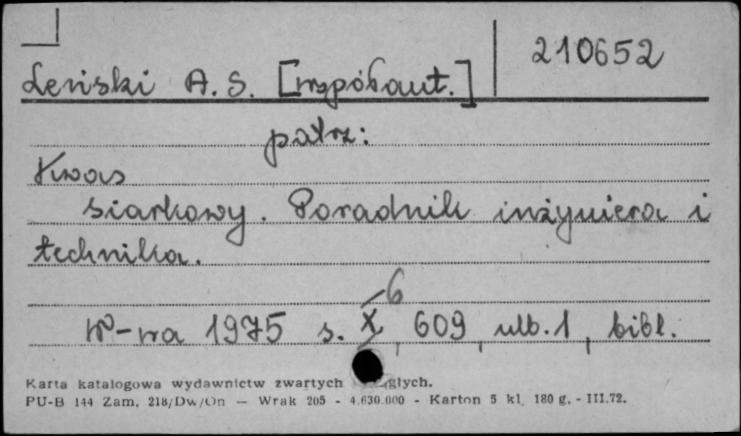 210652
Leński A. S. [współaut.]
patrz:
Kwas
siarkowy. Poradnik inżyniera i
technika.
6
W-wa 1975 s. X, 609, ulb. 1, bibl.
Karta katalogowa wydawnictw zwartych
PU-B 144 Zam. 218/Dw/On — Wrak 205 - 4.630.000 - Karton 5 kl. 180 g. - III.72.